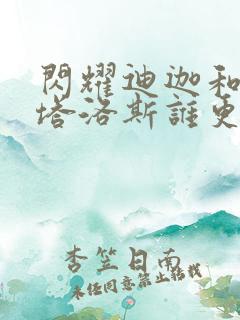 閃耀迪迦和
塔洛斯誰更
杏笠日南
未經同意禁止轉載